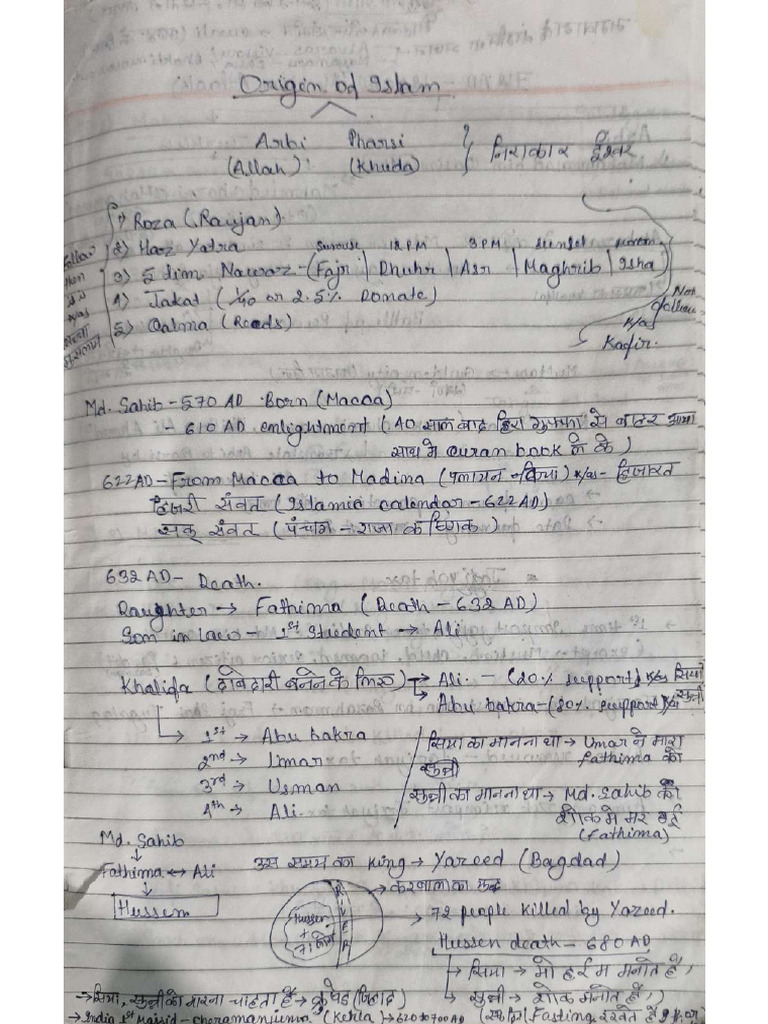 Origin od Islam
Arbi Pharsi
(Allah) (Khuda) } निराकार ईश्वर
1) Roza (Ramjan)
2) Haz Yatra
Sunrise 12PM 3PM sunset
3) 5 tim Nawaz - (Fajr | Dhuhr | Asr | Maghrib | Isha)
4) Jakat (1/40 or 2.5% Donate)
5) Qalma (Reads)
Follow
k/as
Not
follow
k/as
Kafir.
Md. Sahib - 570 AD Born (Macca)
- 610 AD enlightment (40 साल बाद हिरा गुफ्फा से बाहर आया
साथ मे Quran book ले के)
622AD - From Macca to Madina (पलायन किया) k/as - हिजरत
हिजरी संवत (Islamic calendar - 622AD)
सक् संवत (पंचाग - राजा कनिष्क)
632 AD - Death.
Daughter → Fathima (Death - 632 AD)
Son in law - 1st Student → Ali
Khalifa (दावेदारी बनने के लिए) → Ali - (20% support) k/as सिया
→ Abu bakra - (80% support) k/as सुन्नी
→ 1st → Abu bakra
2nd → Umar
3rd → Usman
4th → Ali
सिया का मानना था → Umar ने मारा
Fathima को
सुन्नी
सुन्नी का मानना था → Md. Sahib के
शोक मे मर गई
(Fathima)
Md. Sahib
↓
Fathima ↔ Ali
↓
Hussem
उस समय का King → Yazeed (Bagdad)
→ करबला का युद्ध
Hussen
+
71 लोग
RIVER
→ 72 people killed by Yazeed.
Hussen death - 680 AD
→ सिया → मोहर्रम मनाते हैं,
→ सुन्नी → शोक मनाते हैं,
→ सिया, सुन्नी को मारना चाहता है → क्रुसेड (जिहाद)
→ India 1st Masjid - cheramanjuma (Kerla)
Fasting रखते हैं